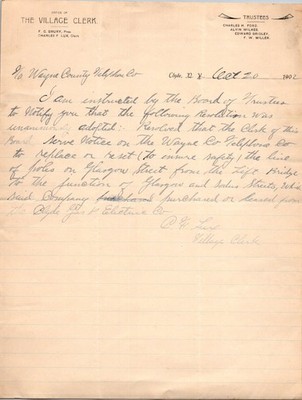 OFFICE OF
THE VILLAGE CLERK
F. G. DRURY, Pres.
CHARLES F. LUX, Clerk
TRUSTEES
CHARLES H. FORD,
ALVIN WILKES,
EDWARD GRIGLEY,
F. W. MILLER.
To Wayne County Telephone Co Clyde, N. Y. Oct 20 1902
I am instructed by the Board of Trustees
to Notify you that the following Resolution was
unanimously adopted: Resolved that the Clerk of this
Board serve Notice on the Wayne Co Telephone Co
to replace or reset (to ensure safety) the line
of Poles on Glasgow Street from the Lift Bridge
to the junction of Glasgow and Streets, 
said Company purchased or leased from
the Clyde Gas & Electric Co
C F Lux
Village Clerk